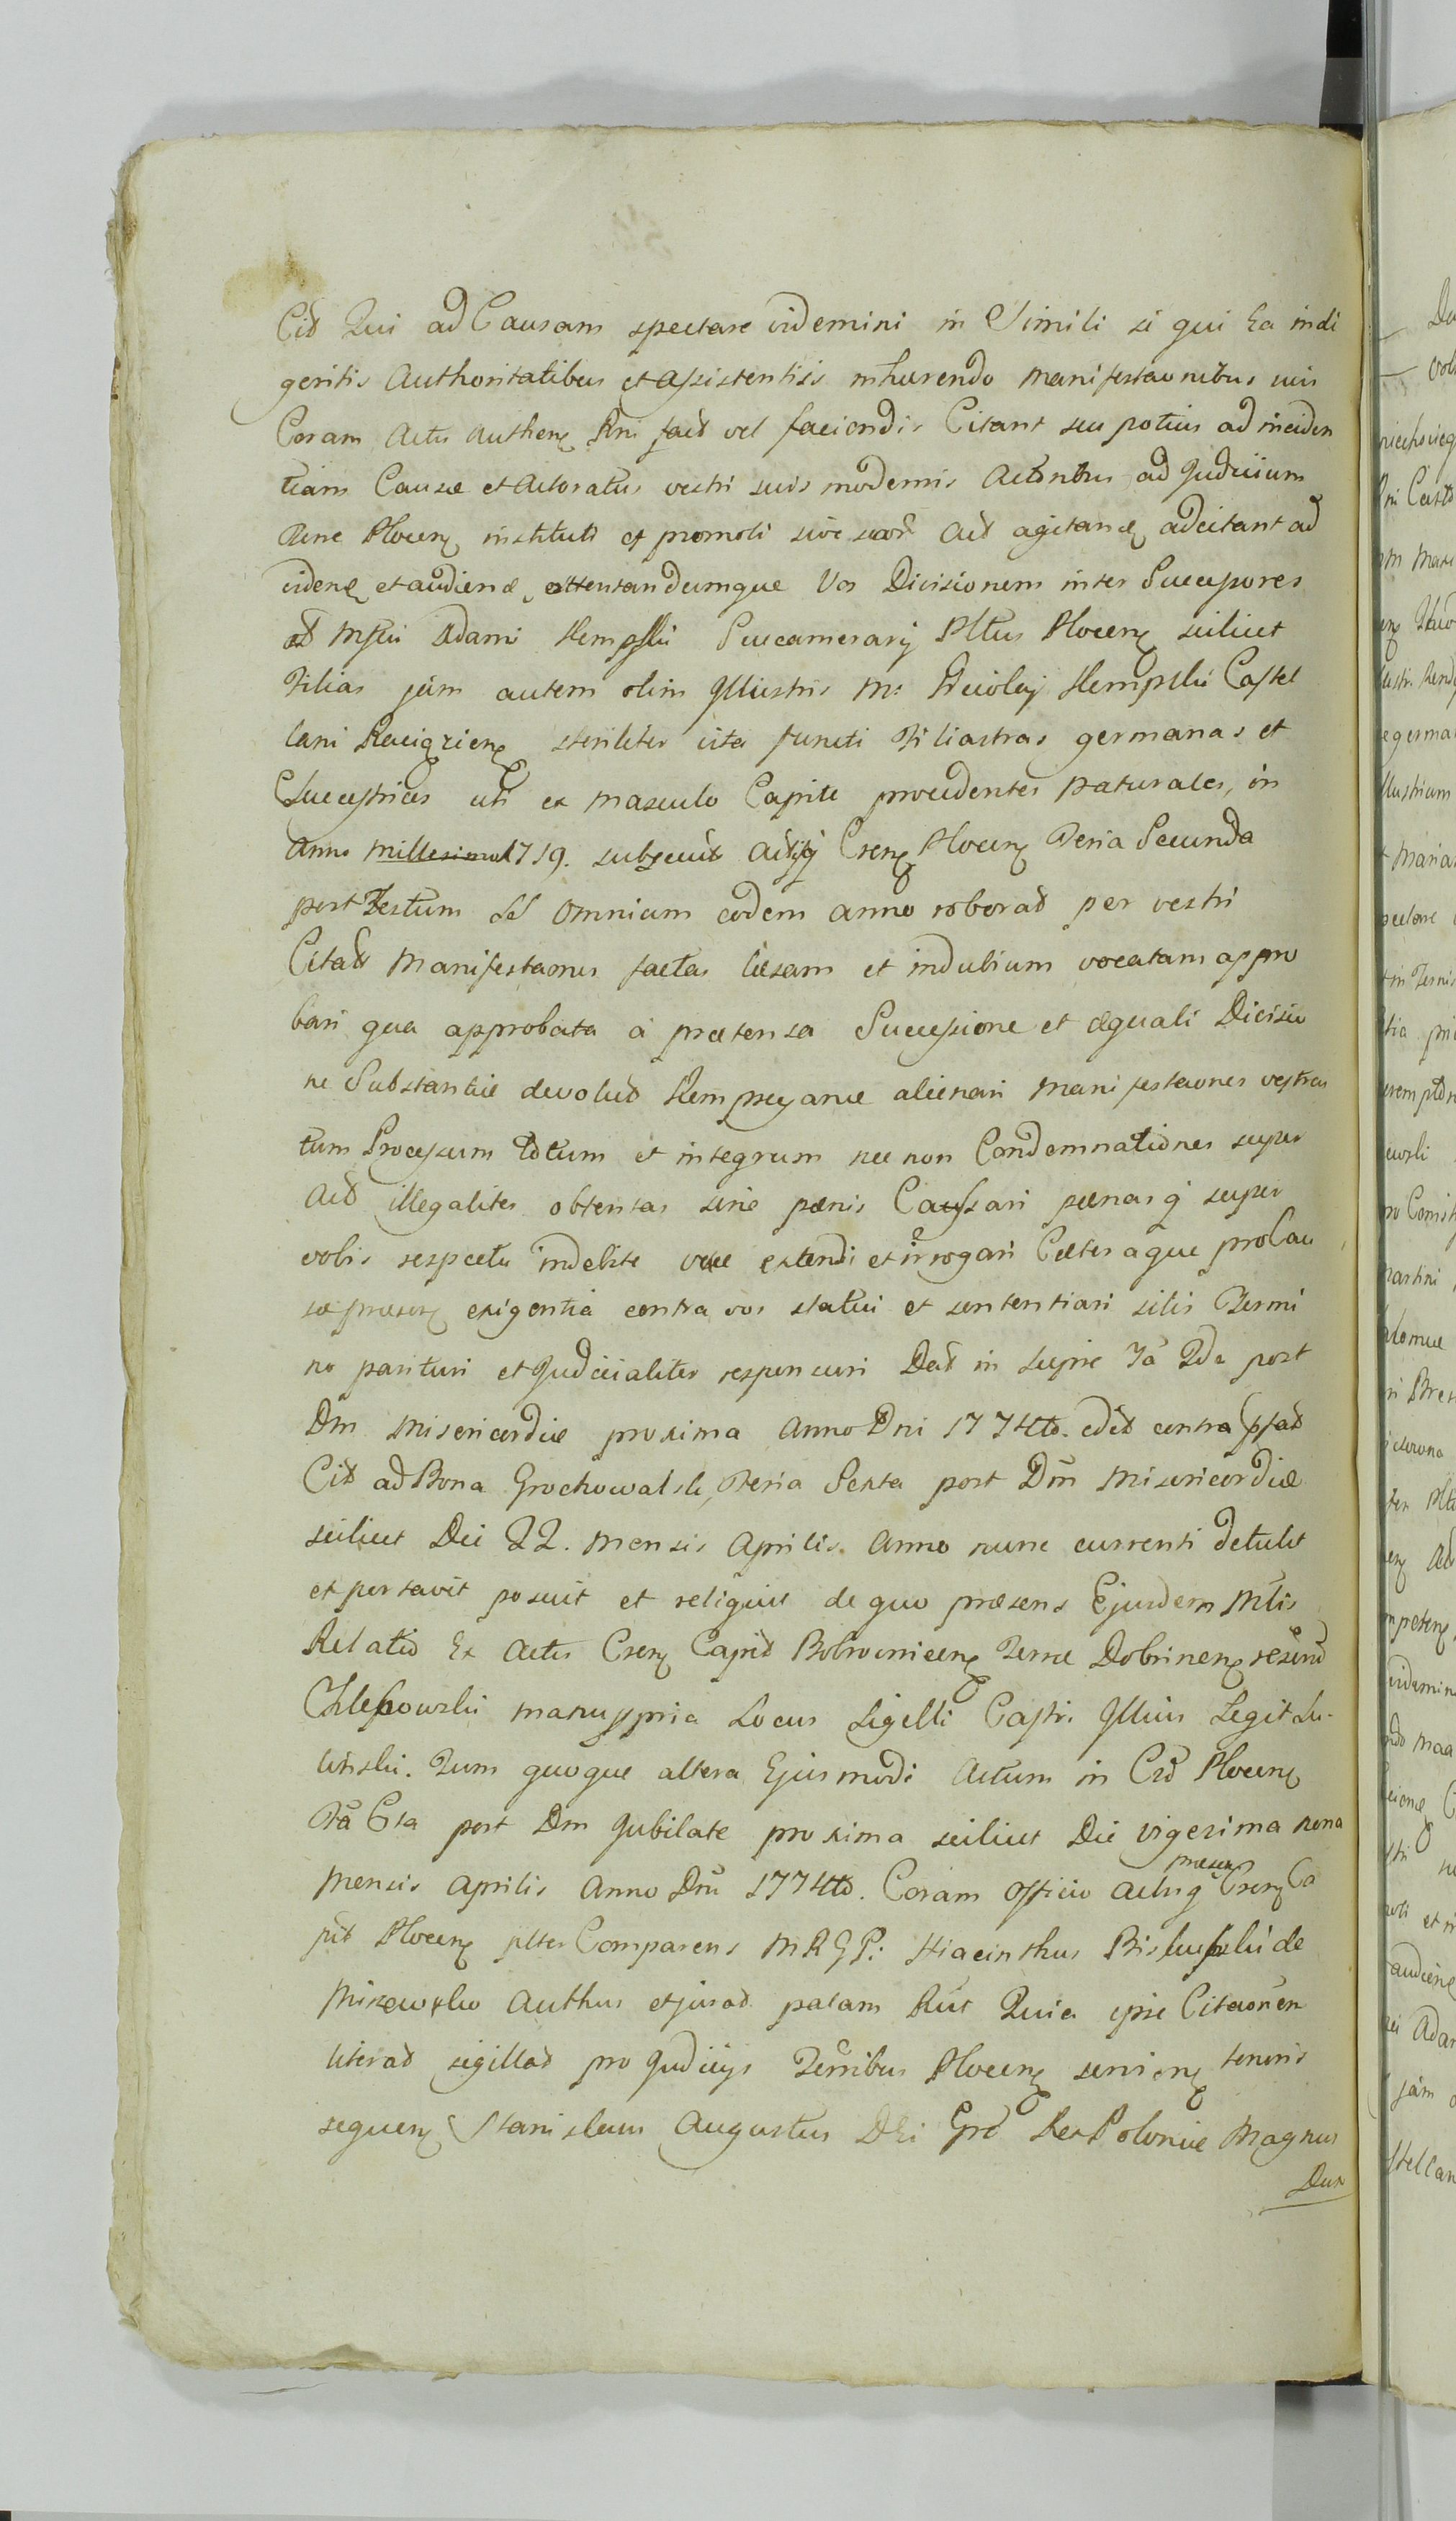 Citt Qui ad Causam spectare videmini in Simili si qui Ea indi
geritis Authoritatibus et Assistentiis inhærendo Manifestaonibus suis
Coram Actis Authen Rni fact vel faciendis Citant seu potius ad inciden
tiam Causæ et Actoratus vestri suis modernis Actoribus ad Judicium
Plocen instituti et promoti sive Act agitan adcitant ad
viden et audiend, attentandumque Vos Divisionem inter Successores
Adami Kempski Succamerarij Pltus Plocen scilicet
Filias jam autem olim Illustris M: Nicolaj Kempski Castel
lani Raciązien steriliter vita functi Filiastras germanas et
Successrices uti ex masculo Capite procedentes naturales, in
Anno 1719. subsecut Actisq Csen Plocen Feria Secunda
post Festum SS Omnium eodem anno roborat per vestri
Citatt Manifestaones factas læsam et indubium vocatam appro
bari qua approbata à prætensa Successione et æquali Divisio
ne Substantiæ devolut Kempscyanæ alienari Manifestaones vestras
tum Processum totum et integrum nec non Condemnationes super
Act illegaliter obtentas sine pænis Cassari pænasq super
vobis respectu indebite extendi et irrogari Cæteraque pro Cau
sæ præsen exigentia contra vos statui et sententiari sitis Termi
no parituri et Judicialiter responsuri Dat in Lipno Fa 2da post
Dm Misericordiæ proxima Anno Dni 1774to. edit contra ppsat
Cit ad Bona Grochowalsk, Feria Sexta post Dm Misericordiæ
scilicet Die 22. Mensis Aprilis Anno nunc currenti detulit
et portavit posuit et reliquit de quo præsens Ejusdem Mtis
Relatio Ex Actis Csen Capit Bobrownicen Terræ Dobrinen
Chlebowski manu ppria Locus Sigilli Castr. Illius Legit Lu-
binski. Tum quoque altera Ejusmodi Actum in Cso Plocen
Fa 6ta post Dm Jubilate proxima scilicet Die vigesima nona
Mensis Aprilis Anno Dni 1774to. Coram Officio Actisq præsen Csen Ca
pit Plocen plter Comparens M R G P: Hiacinthus Biskupski de
Miszewsko Authus et jurat palam Rut Quia ipse Citaonem
literat sigillat pro Judicijs Terribus Plocen servien tenoris
sequen Stanislaus Augustus DEi Gra Rex Poloniæ Magnus
Dux